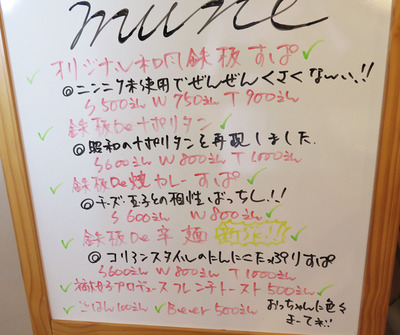 mune
オリジナル和風鉄板すぱ
◎ニンニク未使用でぜんぜんくさくなーい!!
S 500えん W 750えん T 900えん
鉄板Deナポリタン
◎昭和のナポリタンを再現しました
S 600えん W 800えん T 1000えん
鉄板De焼カレーすぱ
◎チーズ、玉子との相性ばっちし!!
S 600えん W 800えん
鉄板De辛麺
◎コリアンスタイルのたんにこたっぷりすぱ
S 600えん W 800えん T 1000えん
プロデュース フレンチトースト 500えん
ごはん 100えん Beer 500えん
おっちゃんに色々
まーてネ!!